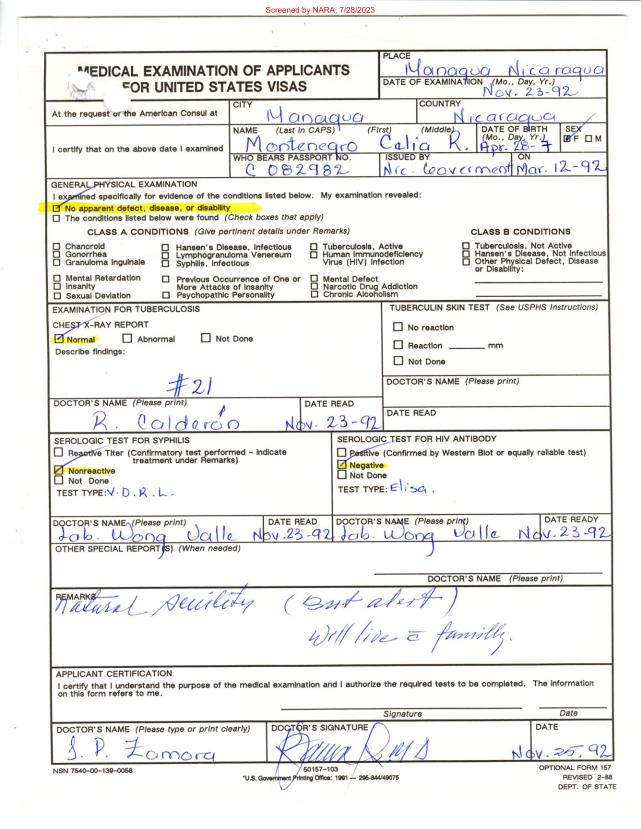 Screened by NARA, 7/28/2023
MEDICAL EXAMINATION OF APPLICANTS
FOR UNITED STATES VISAS
PLACE
Managua Nicaragua
DATE OF EXAMINATION (Mo., Day, Yr.)
Nov. 23-92
At the request of the American Consul at
CITY
Managua
COUNTRY
Nicaragua
I certify that on the above date I examined
NAME (Last in CAPS) (First) (Middle)
Montenegro Celia R.
DATE OF BIRTH
(Mo., Day, Yr.)
Apr. 28-7
SEX
F M
WHO BEARS PASSPORT NO.
C 082982
ISSUED BY
Nic. Goverment
ON
Mar. 12-92
GENERAL PHYSICAL EXAMINATION
I examined specifically for evidence of the conditions listed below. My examination revealed:
No apparent defect, disease, or disability
The conditions listed below were found (Check boxes that apply)
CLASS A CONDITIONS (Give pertinent details under Remarks)
Chancroid
Gonorrhea
Granuloma Inguinale
Hansen's Disease, Infectious
Lymphogranuloma Venereum
Syphilis, Infectious
Tuberculosis, Active
Human Immunodeficiency
Virus (HIV) Infection
Mental Retardation
Insanity
Sexual Deviation
Previous Occurrence of One or
More Attacks of Insanity
Psychopathic Personality
Mental Defect
Narcotic Drug Addiction
Chronic Alcoholism
CLASS B CONDITIONS
Tuberculosis, Not Active
Hansen's Disease, Not Infectious
Other Physical Defect, Disease
or Disability:
EXAMINATION FOR TUBERCULOSIS
CHEST X-RAY REPORT
Normal Abnormal Not Done
Describe findings:
#21
DOCTOR'S NAME (Please print)
R. Calderón
DATE READ
Nov. 23-92
TUBERCULIN SKIN TEST (See USPHS Instructions)
No reaction
Reaction mm
Not Done
DOCTOR'S NAME (Please print)
DATE READ
SEROLOGIC TEST FOR SYPHILIS
Reactive Titer (Confirmatory test performed - indicate
treatment under Remarks)
Nonreactive
Not Done
TEST TYPE: V.D.R.L.
DOCTOR'S NAME (Please print)
Lab. Wong Valle
DATE READ
Nov.23-92
SEROLOGIC TEST FOR HIV ANTIBODY
Positive (Confirmed by Western Blot or equally reliable test)
Negative
Not Done
TEST TYPE: Elisa.
DOCTOR'S NAME (Please print)
Lab. Wong Valle
DATE READY
Nov.23-92
OTHER SPECIAL REPORT(S) (When needed)
DOCTOR'S NAME (Please print)
REMARKS
Natural senility (but alert)
Will live c̄ familly.
APPLICANT CERTIFICATION
I certify that I understand the purpose of the medical examination and I authorize the required tests to be completed. The information
on this form refers to me.
Signature Date
DOCTOR'S NAME (Please type or print clearly)
Zamora
DOCTOR'S SIGNATURE
DATE
Nov. 25. 92
NSN 7540-00-139-0058
50157-103
*U.S. Government Printing Office: 1991 — 295-844/49075
OPTIONAL FORM 157
REVISED 2-88
DEPT. OF STATE